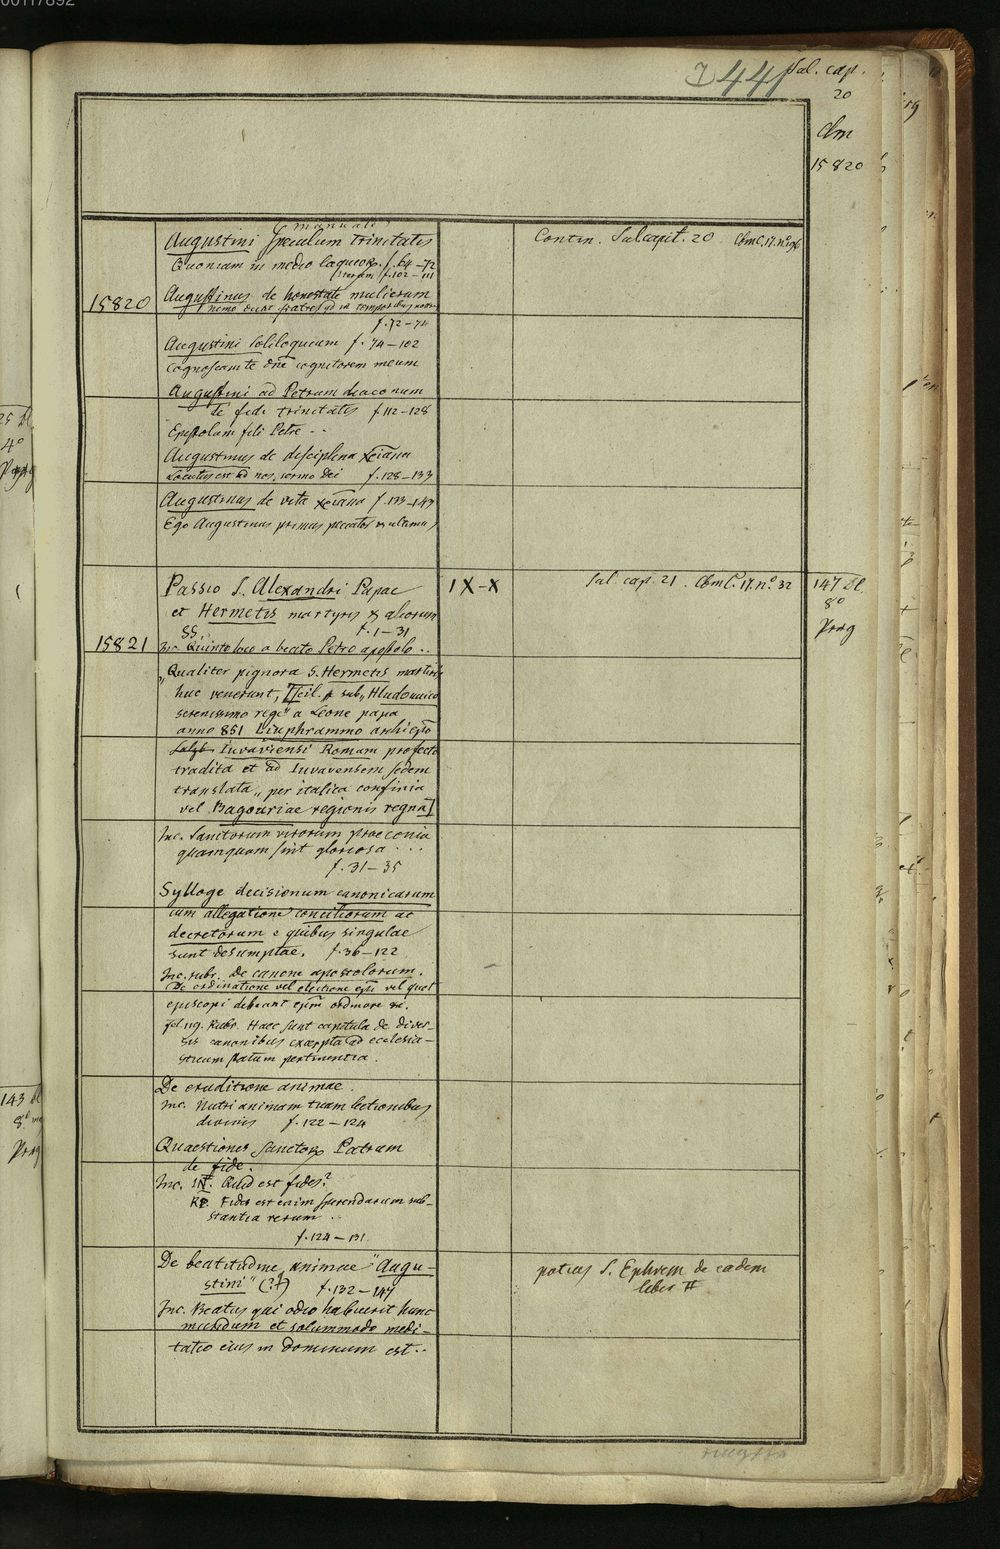 00117892
441
Sal. cap.
20
Clm
15820
manuale
Augustini Speculum trinitatis
Quoniam in medio laqueor. f. 64–72
f. 102–111
15820
Augustinus de honestate mulierum
Nemo dicat fratres
f. 72–74
Augustini Soliloquium f. 74–102
Cognoscam te dne cognitorem meum
Augustini ad Petrum diaconum
de fide trinitatis f. 112–128
Epistolam fili Petre ..
Augustinus de disciplina xiana
Locutus est ad nos sermo dei f. 128–133
Augustinus de vita xiana f. 133–143
Ego Augustinus primus peccator & ultimus
Contin. Salcapit. 20 Cbm C. 17. nº 96
Passio S. Alexandri Papae
et Hermetis martyris & aliorum
SS. f. 1–31
15821
Inc. Quinto loco a beato Petro apostolo ..
IX–X
Sal. cap. 21. Cbm C. 17. nº 32
147 Bl.
8º
Perg
„Qualiter pignora S. Hermetis martiris
huc venerunt, [scil. sub „Hludouuico
serenissimo rege" a Leone papa
anno 851 Liuphrammo archiepo
Salzb Iuvaviensi Romam profecto
tradita et ad Iuvavensem sedem
translata, „per italica confinia
vel Bagouriae regionis regna]
Inc. Sanctorum virorum praeconia
quamquam sint gloriosa ....
f. 31–35
Sylloge decisionum canonicarum
cum allegatione conciliorum ac
decretorum e quibus singulae
sunt desumptae. f. 36–122
Inc. rubr. De canone apostolorum.
De ordinatione vel electione epi vel quot
episcopi debeant epm ordinare
Rubr. Haec sunt capitula de diver-
sis canonibus excerpta ad ecclesia-
sticum statum pertinentia.
De eruditione animae.
Inc. Nutri animam tuam lectionibus
divinis f. 122–124
Quaestiones Sanctor. Patrum
de fide.
Inc. INT. Quid est fides?
RP. Fides est enim sperendarum sub-
stantia rerum ..
f. 124–131
De beatitudine animae "Augu-
stini" (?†) f. 132–147
Inc. Beatus qui odio habuerit hunc
mundum et solummodo medi-
tatio eius in dominum est..
potius S. Ephrem de eadem
liber II
4º
143 Bl
8º
Perg